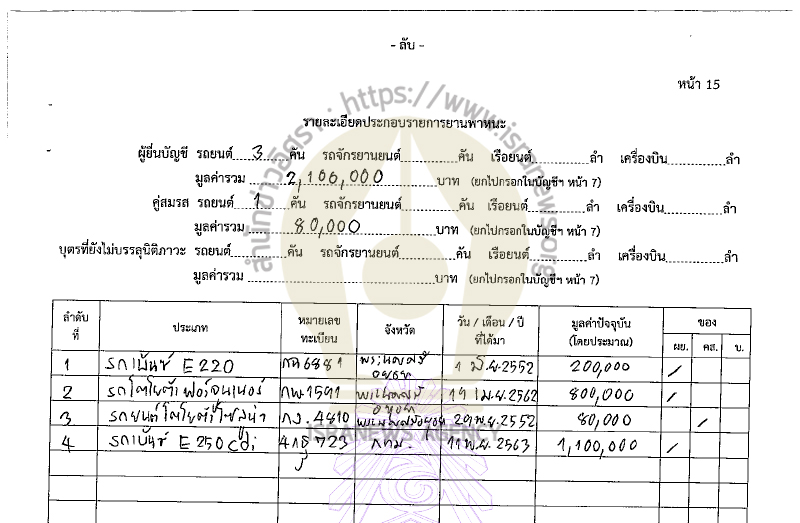 - ลับ -
หน้า 15
รายละเอียดประกอบรายการยานพาหนะ
ผู้ยื่นบัญชี รถยนต์ 3 คัน รถจักรยานยนต์ คัน เรือยนต์ ลำ เครื่องบิน ลำ
มูลค่ารวม 2,100,000 บาท (ยกไปกรอกในบัญชีฯ หน้า 7)
คู่สมรส รถยนต์ 1 คัน รถจักรยานยนต์ คัน เรือยนต์ ลำ เครื่องบิน ลำ
มูลค่ารวม 80,000 บาท (ยกไปกรอกในบัญชีฯ หน้า 7)
บุตรที่ยังไม่บรรลุนิติภาวะ รถยนต์ คัน รถจักรยานยนต์ คัน เรือยนต์ ลำ เครื่องบิน ลำ
มูลค่ารวม บาท (ยกไปกรอกในบัญชีฯ หน้า 7)
ลำดับที่ ประเภท หมายเลขทะเบียน จังหวัด วัน / เดือน / ปี ที่ได้มา มูลค่าปัจจุบัน (โดยประมาณ) ของ ผย. คส. บ.
1 รถเบ็นซ์ E220 6881 พระนครศรีอยุธยา 2552 200,000 /
2 รถโตโยต้า ฟอร์จูนเนอร์ กพ.1591 พระนครศรีอยุธยา 19 เม.ย.2562 800,000 /
3 รถยนต์โตโยต้าโซลูน่า กง.4810 พระนครศรีอยุธยา 20 พ.ย.2552 80,000 /
4 รถเบ็นซ์ E250 cdi 723 กทม. 11 พ.ย.2563 1,100,000 /
สำนักข่าวอิศรา : https://www.isranews.org
ISRANEWS AGENCY